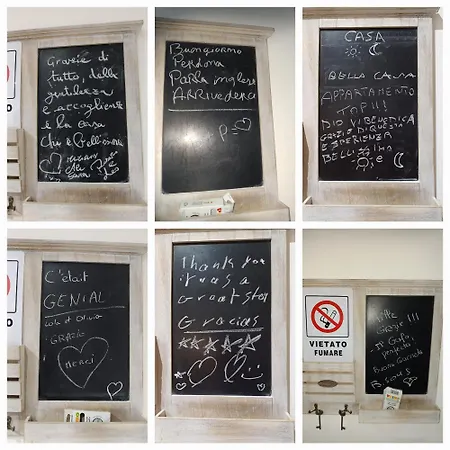 Grazie di
tutto, della
gentilezza
e accogliente
e la casa
che è bellissima
Buongiorno
Perdona
Parla inglese
ARRIVEDERCI
CASA
BELLA CALDA
APPARTAMENTO
TOP!!!
DIO VI BENEDICA
GRAZIE DI QUESTA
ESPERIENZA
BELLISSIMA
e
C'était
GENIAL
GRAZIE
MERCI
Thank you
it was a
Great stay
Gracias
VIETATO
FUMARE
Grazie!!!
Buona Giornata